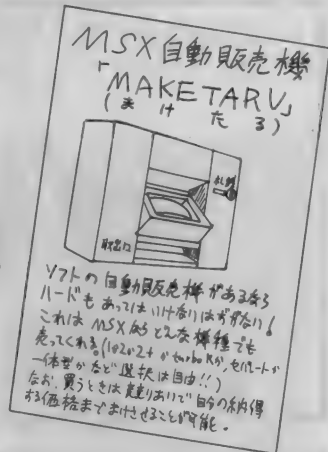 MSX自動販売機
「MAKETARU」
(まけたる)
札
取出口
ソフトの自動販売機があるなら
ハードもあってはいけないはずがない!
これはMSXならどんな機種でも
売ってくれる。(1か2か2+かturboRか、セパレートか
一体型かなど選択は自由!!)
なお、買うときは競りあいで自分の納得
する価格までまけさせることが可能。